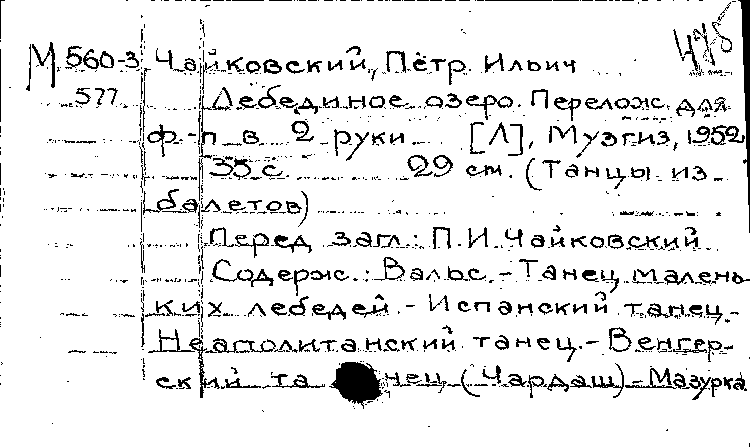 М 560-3 Чайковский, Пётр Ильич 478
577 Лебединое озеро. Перелож. для
ф-п в 2 руки [Л], Музгиз, 1952
35 с. 29 см. (Танцы из
балетов)
Перед загл.: П.И.Чайковский
Содерж.: Вальс.-Танец малень
ких лебедей.-Испанский танец.-
Неаполитанский танец.-Венгер-
ский та нец (Чардаш)-Мазурка